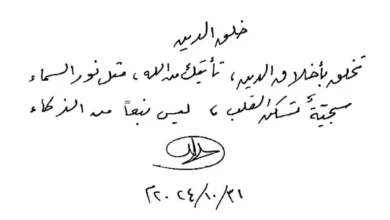 خلق الدين
تخلق بأخلاق الدين، تأتيك من الله، مثل نور السماء
سجيّةٌ تسكن القلب، ليس نبعاً من الذكاء
٢٠٢٤/١٠/٣١